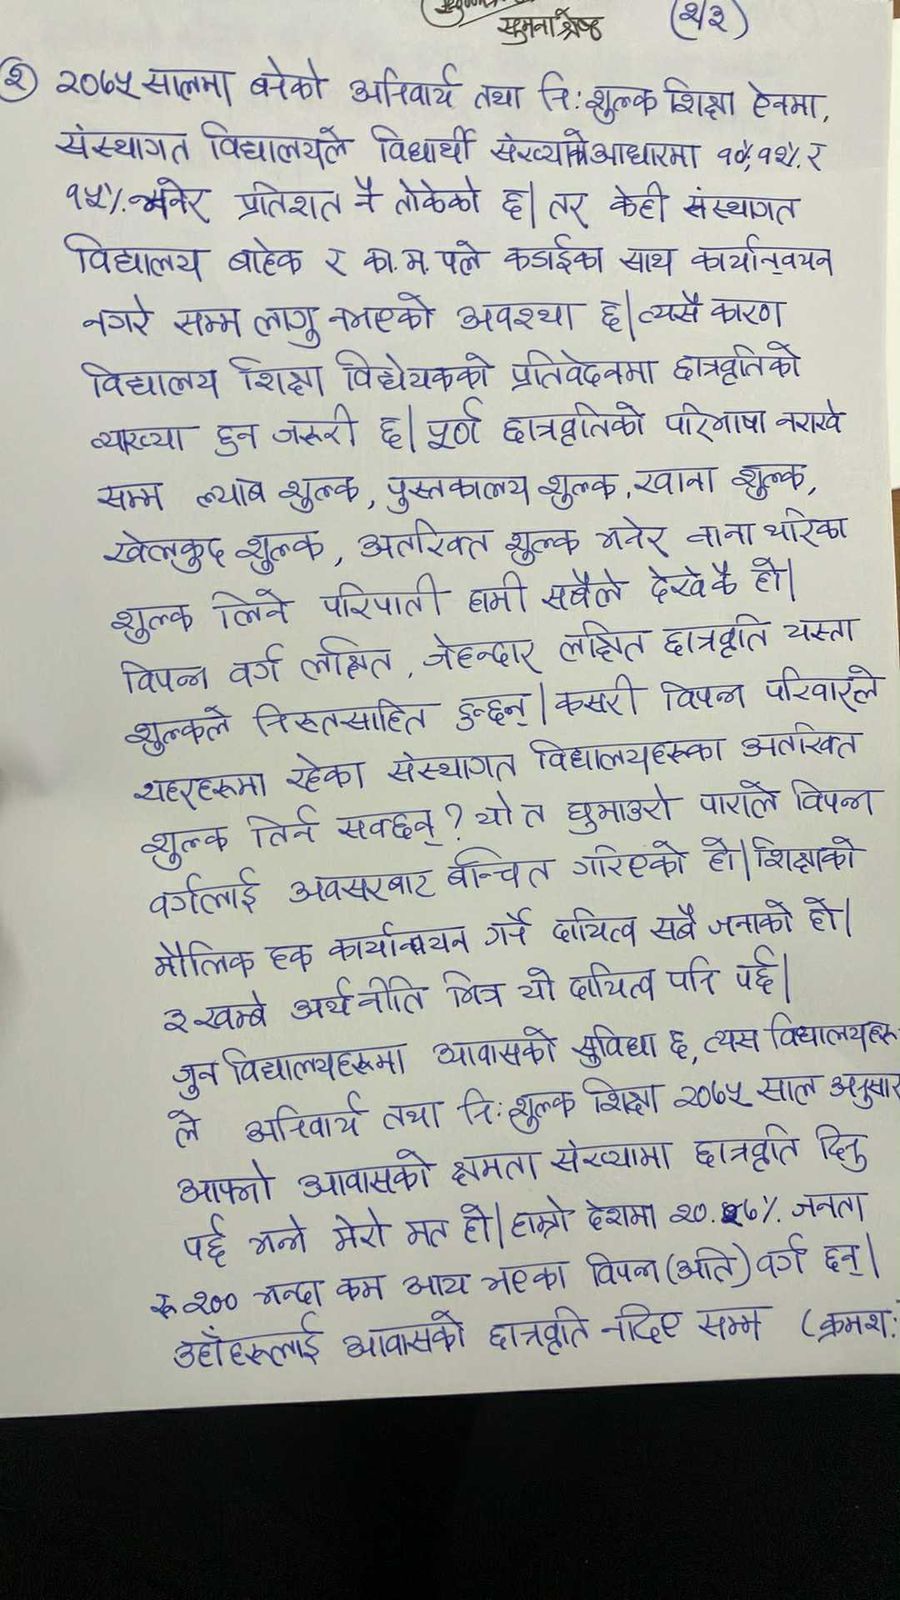 सुमना श्रेष्ठ (२/३)
② २०७५ सालमा बनेको अनिवार्य तथा नि:शुल्क शिक्षा ऐनमा,
संस्थागत विद्यालयले विधार्थी संख्याको आधारमा १०%, १२% र
१५% भनेर प्रतिशत नै तोकेको छ। तर केही संस्थागत
विद्यालय बाहेक र का.म.पले कडाईका साथ कार्यान्वयन
नगरे सम्म लागु नभएको अवश्था छ। त्यसै कारण
विद्यालय शिक्षा विधेयकको प्रतिवेदनमा छात्रवृतिको
व्याख्या हुन जरूरी छ। पूर्ण छात्रवृतिको परिभाषा नराखे
सम्म ल्याब शुल्क, पुस्तकालय शुल्क, खाना शुल्क,
खेलकुद शुल्क, अतरिक्त शुल्क भनेर नाना थरिका
शुल्क लिने परिपाती हामी सबैले देखेकै हो।
विपन्न वर्ग लक्षित, जेहन्दार लक्षित छात्रवृति यस्ता
शुल्कले निरूतसाहित हुन्छन्। कसरी विपन्न परिवारले
शहरहरूमा रहेका संस्थागत विद्यालयहरूका अतरिक्त
शुल्क तिर्न सक्छन्? यो त घुमाउरो पाराले विपन्न
वर्गलाई अवसरबाट बन्चित गरिएको हो। शिक्षाको
मौलिक हक कार्यान्वयन गर्ने दायित्व सबै जनाको हो।
३ खम्बे अर्थनीति भित्र यो दायित्व पनि पर्छ।
जुन विद्यालयहरूमा आवासको सुविधा छ, त्यस विद्यालयहरू
ले अनिवार्य तथा नि:शुल्क शिक्षा २०७५ साल अनुसार
आफ्नो आवासको क्षमता संख्यामा छात्रवृति दिनु
पर्छ भन्ने मेरो मत हो। हाम्रो देशमा २०.२७% जनता
रू २०० भन्दा कम आय भएका विपन्न (अति) वर्ग छन्।
उहाँहरूलाई आवासको छात्रवृति नदिए सम्म (क्रमश: